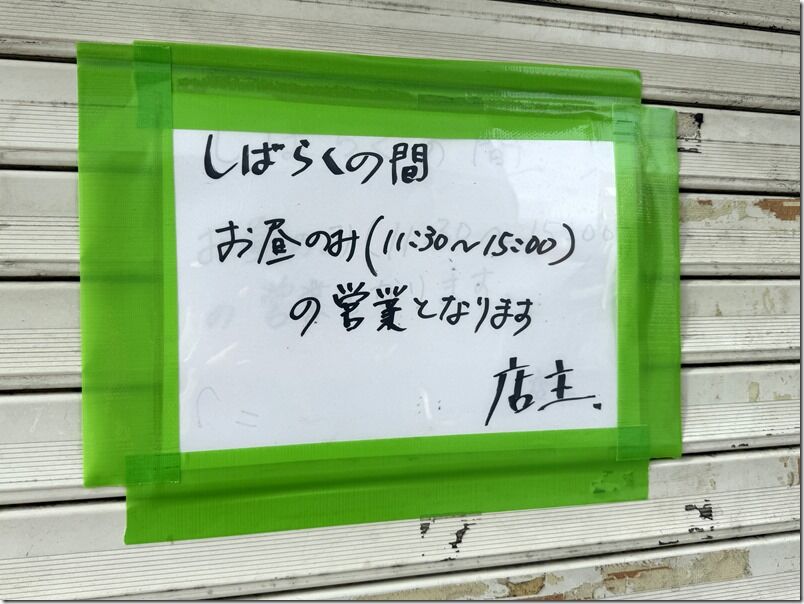 しばらくの間
お昼のみ(11:30～15:00)
の営業となります
店主.